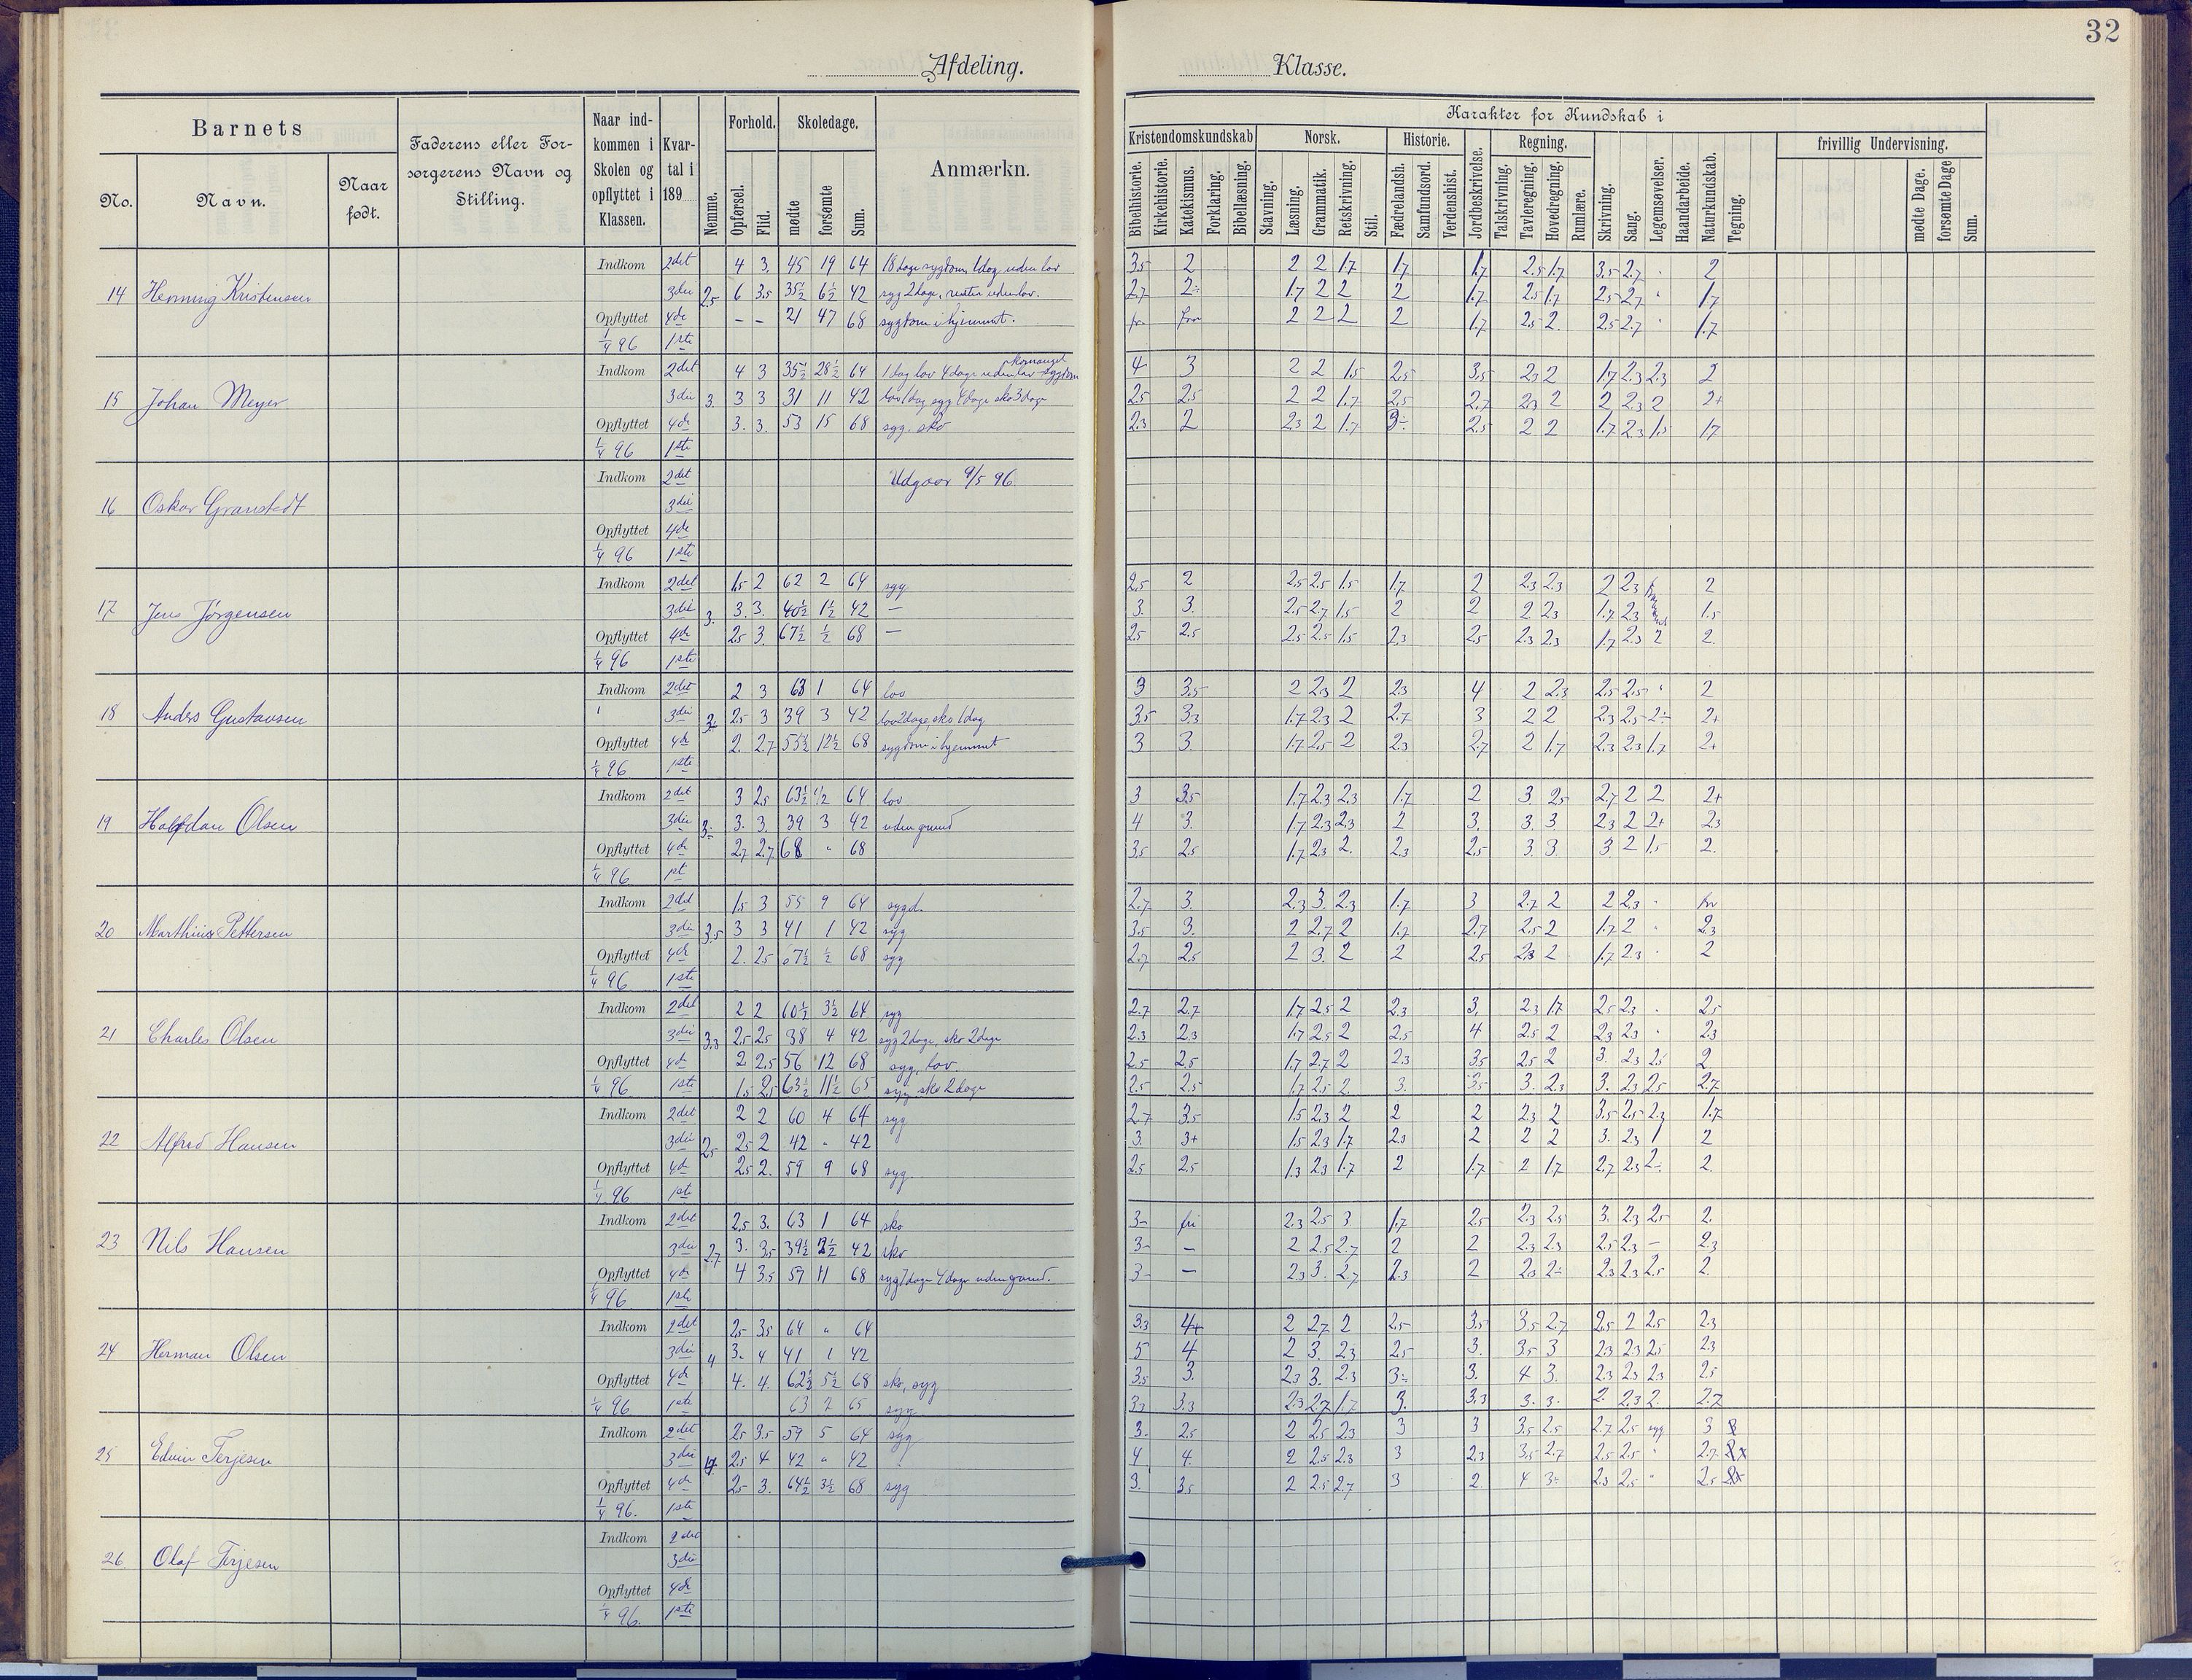 32
Afdeling. Klasse.
Barnets
No.
Navn.
Naar født.
Faderens eller Forsørgerens Navn og Stilling.
Naar indkommen i Skolen og opflyttet i Klassen.
Kvartal i 189
Nemme.
Forhold.
Opførsel.
Flid.
Skoledage.
mødte
forsømte
Sum.
Anmærkn.
Karakter for Kundskab i
Kristendomskundskab
Bibelhistorie.
Kirkehistorie.
Katekismus.
Forklaring.
Bibellæsning.
Norsk.
Stavning.
Læsning.
Grammatik.
Retskrivning.
Stil.
Historie.
Fædrelandsh.
Samfundsord.
Verdenshist.
Jordbeskrivelse.
Regning.
Talskrivning.
Tavleregning.
Hovedregning.
Rumlære.
Skrivning.
Sang.
Legemsøvelser.
Haandarbeide.
Naturkundskab.
Tegning.
frivillig Undervisning.
mødte Dage.
forsømte Dage
Sum.
Indkom 2det 4 3. 45 19 64 18 dage sygdom 1 dag uden lov 3.5 2 2 2 1.7 1.7 1.7 2.5 1.7 3.5 2.7 2
14 Henning Kristensen 3die 2.5 6 3.5 35½ 6½ 42 syg 2 dage, rester uden lov. 2.7 2÷ 1.7 2 2 2 1.7 2.5 1.7 2.5 2.7 1.7
Opflyttet 4de – – 21 47 68 sygdom i hjemmet. 2 2 2 2 1.7 2.5 2. 2.5 2.7 1.7
¼ 96 1ste
Indkom 2det 4 3 35½ 28½ 64 1 dag lov 4 dage uden lov skomangel sygdom 4 3 2 2 1.5 2.5 3.5 2.3 2 1.7 2.3 2.3 2
15 Johan Meyer 3die 3. 3 3 31 11 42 lov 1 dag syg 4 dage sko 3 dage 2.5 2.5 2 2 1.7 2.5 2.7 2.3 2 2 2.3 2 2+
Opflyttet 4de 3. 3. 53 15 68 syg. sko 2.3 2 2.3 2 1.7 3÷ 2.5 2 2 1.7 2.3 1.5 1.7
¼ 96 1ste
Indkom 2det Udgaar 9/5 96
16 Oskar Granstedt 3die
Opflyttet 4de
¼ 96 1ste
Indkom 2det 1.5 2 62 2 64 syg 2.5 2 2.5 2.5 1.5 1.7 2 2.3 2.3 2 2.3 2
17 Jens Jørgensen 3die 3. 3. 3. 40½ 1½ 42 — 3. 3. 2.5 2.7 1.5 2 2 2 2.3 1.7 2.3 1.5
Opflyttet 4de 2.5 3. 67½ ½ 68 — 2.5 2.5 2.5 2.5 1.5 2.3 2.5 2.3 2.3 1.7 2.3 2 2.
¼ 96 1ste
Indkom 2det 2 3 63 1 64 lov 3 3.5 2 2.3 2 2.3 4 2 2.3 2.5 2.5 2
18 Anders Gustavsen 3die 3. 2.5 3 39 3 42 lov 2 dage, sko 1 dag 3.5 3.3 1.7 2.3 2 2.7 3 2 2 2.3 2.5 2÷ 2+
Opflyttet 4de 2. 2.7 55½ 12½ 68 sygdom i hjemmet 3 3. 1.7 2.5 2 2.3 2.7 2 1.7 2.3 2.3 1.7 2+
¼ 96 1ste
Indkom 2det 3 2.5 63½ ½ 64 lov 3 3.5 1.7 2.3 2.3 1.7 2 3. 2.5 2.7 2 2 2+
19 Halfdan Olsen 3die 3. 3. 3. 39 3 42 uden grund 4 3. 1.7 2.3 2.3 2 3. 3. 3 2.3 2 2+ 2.3
Opflyttet 4de 2.7 2.7 68 " 68 3.5 2.5 1.7 2.3 2. 2.3 2.5 3. 3. 3 2 1.5 2.
¼ 96 1st
Indkom 2det 1.5 3 55 9 64 sygd. 2.7 3. 2.3 3. 2.3 1.7 3 2.7 2 2 2.3
20 Marthinius Pettersen 3die 3.5 3 3 41 1 42 syg 3.5 3. 2 2.7 2 1.7 2.7 2.5 2 1.7 2 2.3
Opflyttet 4de 2. 2.5 67½ ½ 68 syg 2.7 2.5 2 3. 2 2 2.5 2.3 2 1.7 2.3 2
¼ 96 1ste
Indkom 2det 2 2 60½ 3½ 64 syg 2.7 2.7 1.7 2.5 2 2.3 3. 2.3 1.7 2.5 2.3 2.5
21 Charles Olsen 3die 3.3 2.5 2.5 38 4 42 syg 2 dage, sko 2 dage 2.3 2.3 1.7 2.5 2 2.5 4 2.5 2 2.3 2.3 2.3
Opflyttet 4de 2 2.5 56 12 68 syg, lov. 2.5 2.5 1.7 2.7 2 2.3 3.5 2.5 2 3. 2.3 2.5 2
¼ 96 1ste 1.5 2.5 63½ 11½ 65 syg sko 2 dage 2.5 2.5 1.7 2.5 2. 3. 3.5 3. 2.3 3. 2.3 2.5 2.7
Indkom 2det 2 2 60 4 64 syg 2.7 3.5 1.5 2.3 2 2 2 2.3 2 3.5 2.5 2.3 1.7
22 Alfred Hansen 3die 2.5 2.5 2 42 " 42 3. 3+ 1.5 2.3 1.7 2.3 2 2 2 3. 2.3 1 2
Opflyttet 4de 2.5 2. 59 9 68 syg. 2.5 2.5 1.3 2.3 1.7 2 1.7 2 1.7 2.7 2.3 2÷ 2.
¼ 96 1ste
Indkom 2det 2.5 3. 63 1 64 sko 3- fri 2.3 2.5 3 1.7 2.5 2.3 2.5 3. 2.3 2.5 2.
23 Nils Hansen 3die 2.7 3. 3.5 39½ 2½ 42 sko 3- – 2 2.5 2.7 2 2 2.3 2.3 2.5 2.3 – 2.3
Opflyttet 4de 4 3.5 57 11 68 syg 7 dage 4 dage uden grund. 3- – 2.3 3. 2.7 2.3 2 2.3 2÷ 2.3 2.3 2.5 2.
¼ 96 1ste
Indkom 2det 2.5 3.5 64 " 64 3.3 4+ 2 2.7 2 2.5 3.5 3.5 2.7 2.5 2 2.5 2.3
24 Herman Olsen 3die 4 3. 4 41 1 42 5 4 2 3. 2.3 2.5 3. 3.5 3 2.3 2.3 2.5 2.3
Opflyttet 4de 4. 4. 62½ 5½ 68 sko, syg 3.5 3. 2.3 3. 2.3 3÷ 3. 4 3. 2.3 2.3 2.3 2.5
¼ 96 1ste 63 2 65 syg 3.3 3.3 2.3 2.7 1.7 3. 3.3 3. 3. 2. 2.3 2. 2.7
Indkom 2det 2.5 3.5 59 5 64 syg 3. 2.5 2 2.5 2.3 3 3 3.5 2.5 2.7 2.5 syg 3
25 Edvin Terjesen 3die 4 2.5 4 42 " 42 4 4. 2 2.5 2.3 3 2.3 3.5 2.7 2.5 2.5 " 2.7
Opflyttet 4de 2.5 3. 64½ 3½ 68 syg 3. 3.5 2 2.5 2.7 3 2. 4 3÷ 2.3 2.5 " 2.5
¼ 96. 1ste
Indkom 2det
26 Olaf Terjesen 3die
Opflyttet 4de
¼ 96. 1ste